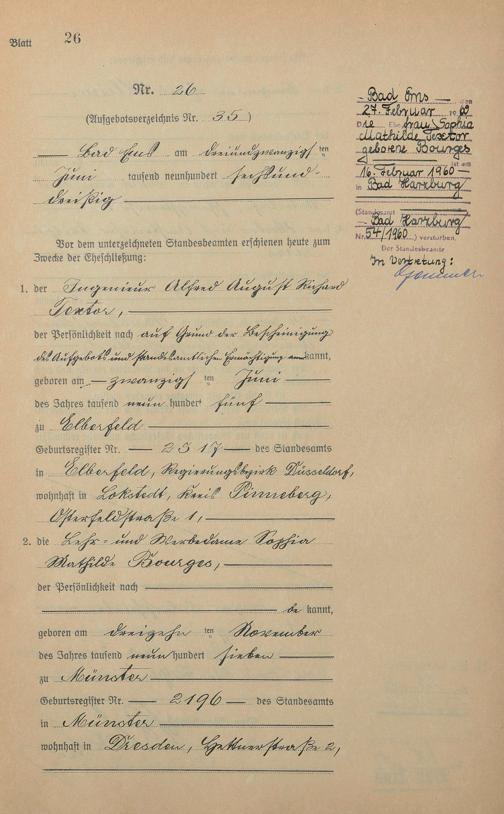 Blatt 26
Nr. 26
(Aufgebotsverzeichnis Nr. 35)
Bad Ems am dreiundzwanzigsten
Juni tausend neunhundert sechsund-
dreißig
Vor dem unterzeichneten Standesbeamten erschienen heute zum
Zwecke der Eheschließung:
1. der Ingenieur Alfred August Richard
Textor,
der Persönlichkeit nach auf Grund der Bescheinigung
des Aufgebots und standesamtlichen Ermächtigung anerkannt,
geboren am zwanzigsten Juni
des Jahres tausend neun hundert fünf
zu Elberfeld
Geburtsregister Nr. 2517 des Standesamts
in Elberfeld, Regierungsbezirk Düsseldorf,
wohnhaft in Lokstedt, Kreis Pinneberg,
Osterfeldstraße 1,
2. die Lehr- und Werbedame Sophia
Mathilde Bourges,
der Persönlichkeit nach
be kannt,
geboren am dreizehnten November
des Jahres tausend neun hundert sieben
zu Münster
Geburtsregister Nr. 2196 des Standesamts
in Münster
wohnhaft in Dresden, Hettnerstraße 2,
Bad Ems, den
27. Februar 1960
Die Ehefrau Sophia
Mathilde Textor
geborene Bourges
ist am
16. Februar 1960
in Bad Harzburg
(Standesamt
Bad Harzburg
Nr. 54/1960) verstorben.
Der Standesbeamte
In Vertretung: